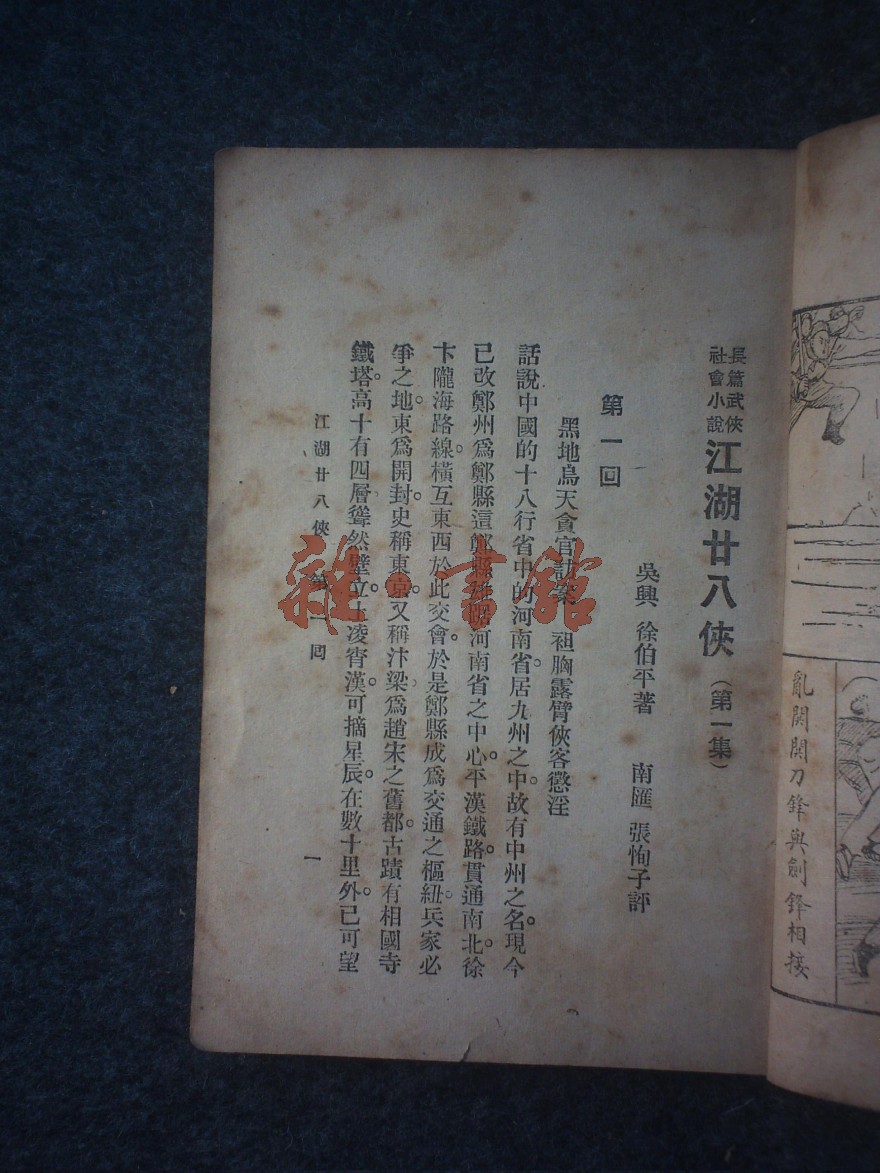 亂闕闕刀鋒與劍鋒相接
長篇武俠
社會小說
江湖廿八俠（第一集）
吳興 徐伯平著 南匯 張恂子評
第一回
黑地烏天貪官訪案 袒胸露臂俠客懲淫
話說中國的十八行省中的河南省。居九州之中。故有中州之名。現今
已改鄭州爲鄭縣這鄭縣雄踞河南省之中心。平漢鐵路。貫通南北。徐
卞隴海路線。橫互東西於此交會。於是鄭縣成爲交通之樞紐。兵家必
爭之地。東爲開封。史稱東京。又稱汴梁爲趙宋之舊都。古蹟有相國寺
鐵塔。高十有四層。聳然壁立。上凌霄漢。可摘星辰。在數十里外。已可望
江湖廿八俠 第一回 一
雜·書館